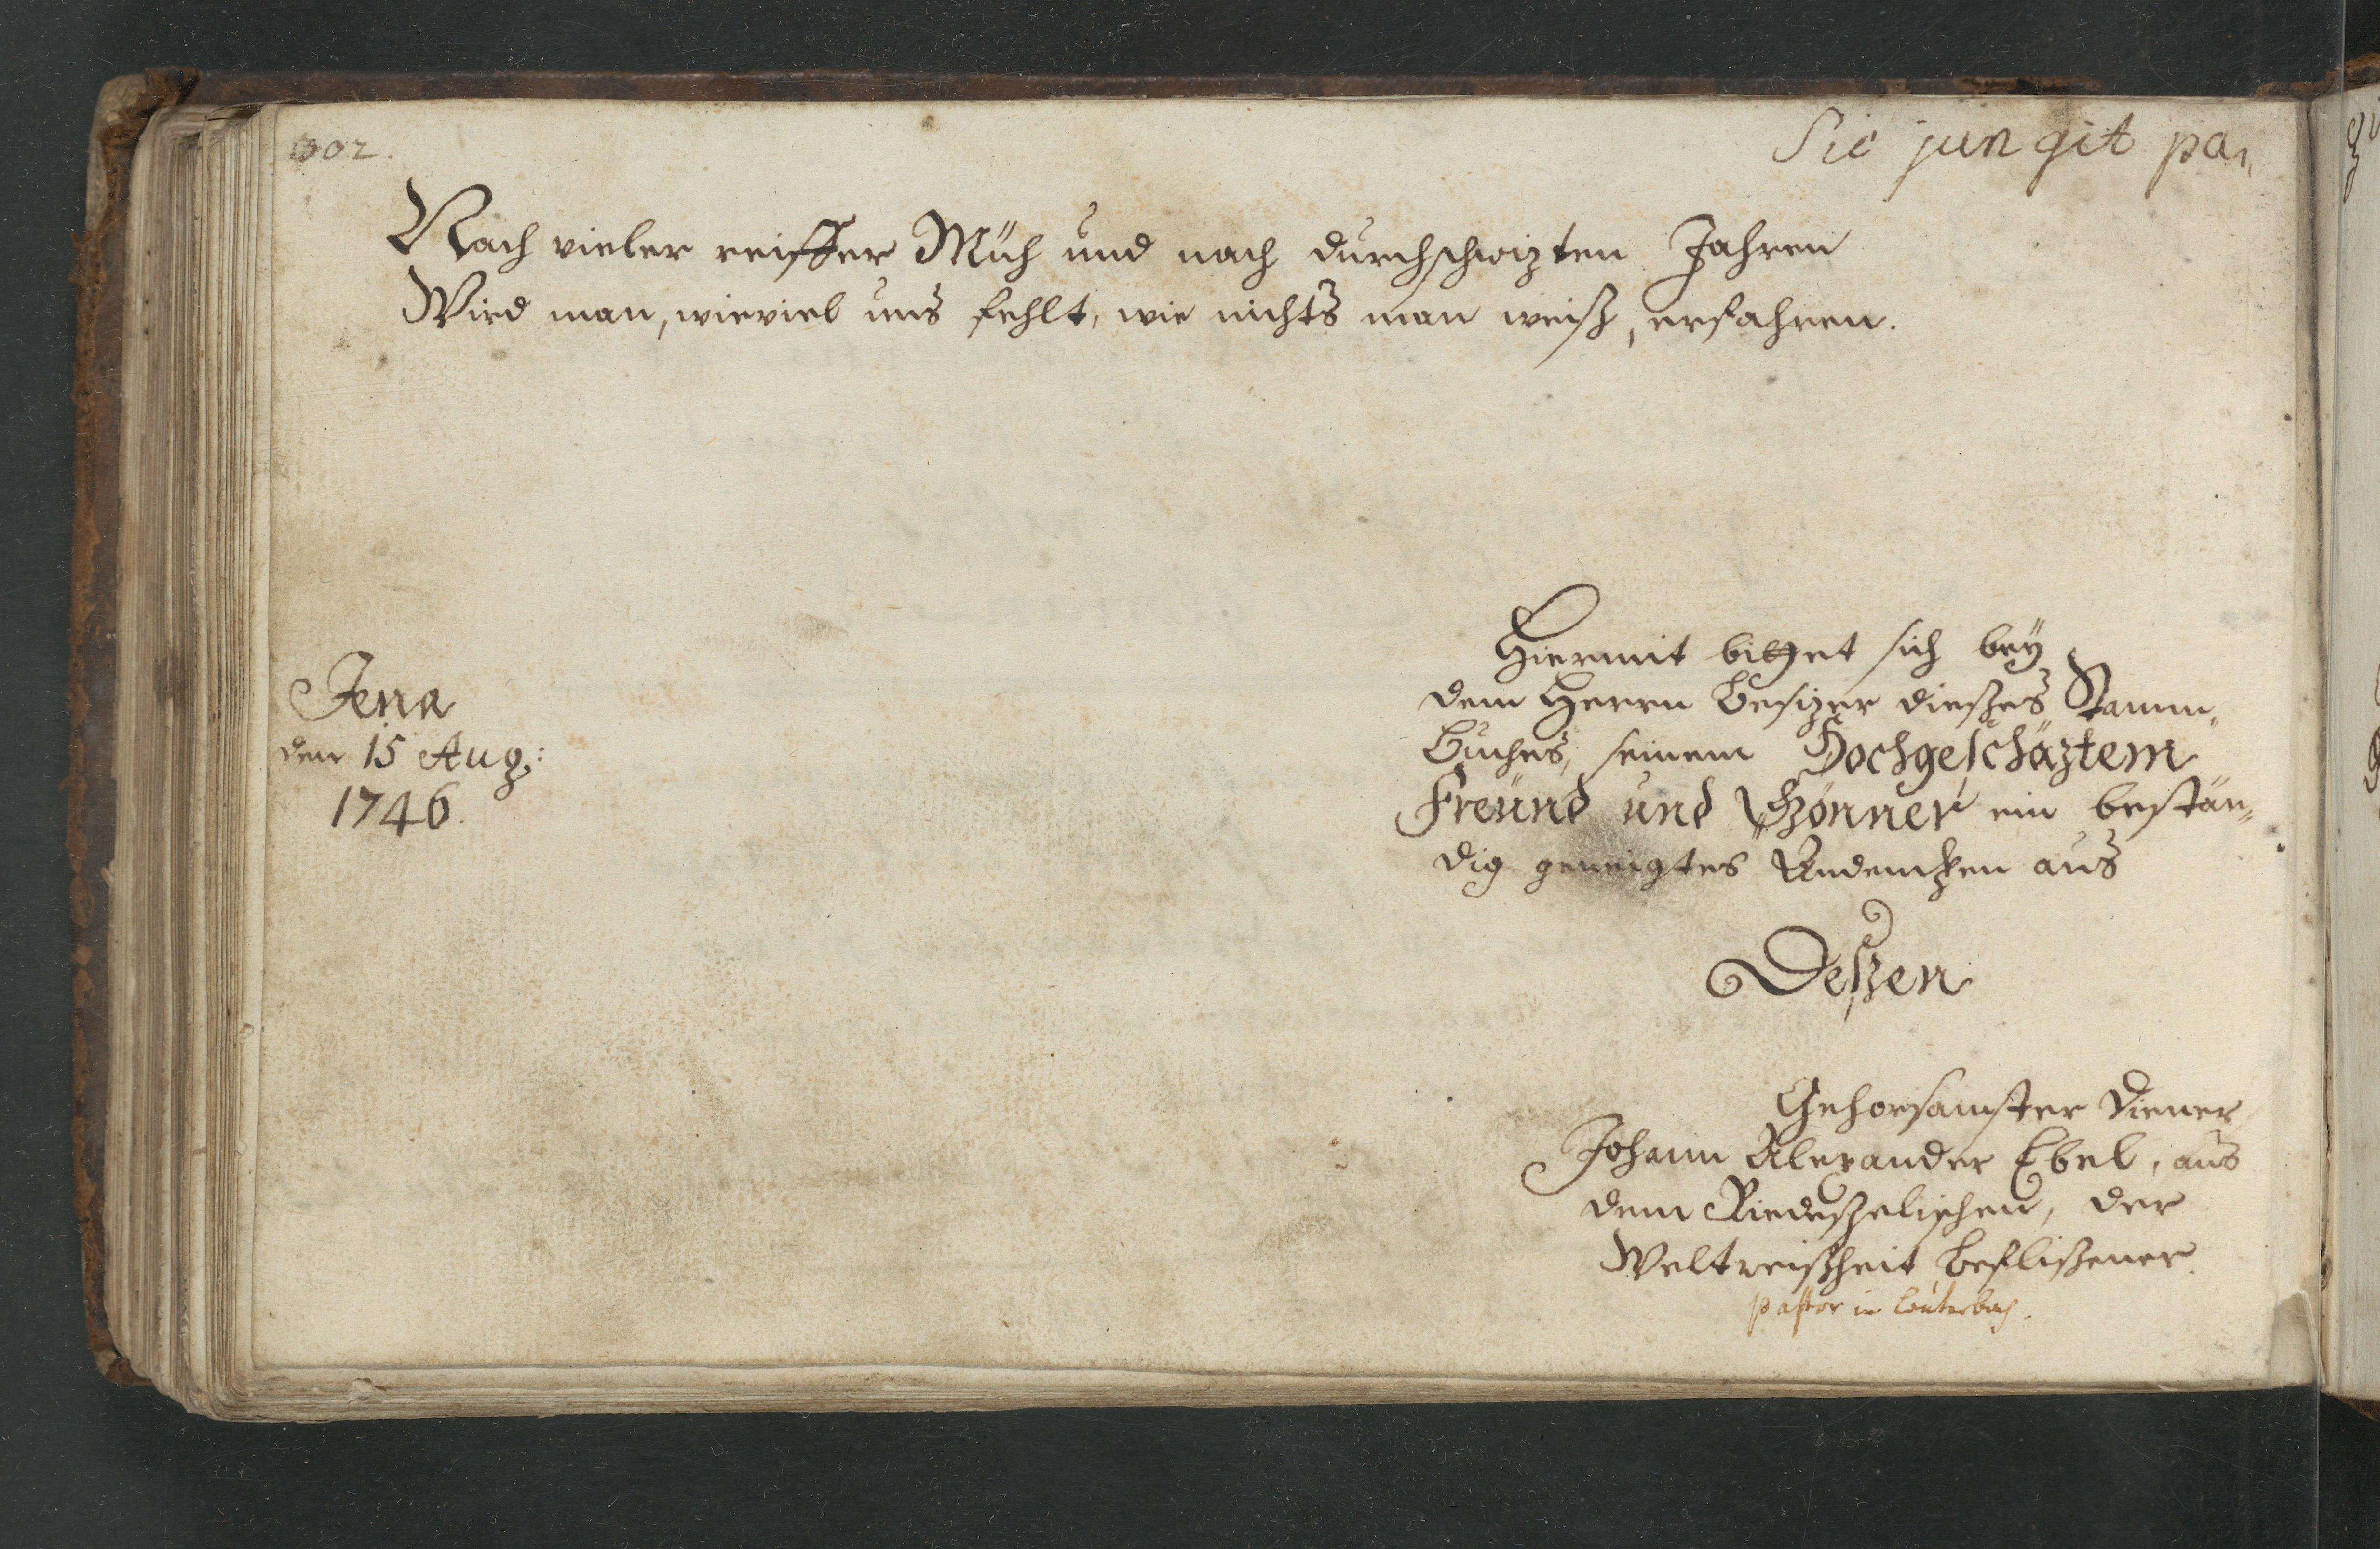 302.
Sic jungit pa,,
Nach vieler reiffer Müh und nach durchschwizten Jahren
Wird man, wieviel uns fehlt, wie nichts man weiß, erfahren.
Jena
den 15 Aug:
1746.
Hiermit bittet sich bey
dem Herrn Besizer dießes Stamm„
Buches, seinem Hochgeschäztem
Freund und Gönner ein bestän„
dig geneigtes Andencken aus
Deßen
Gehorsamster Diener
Johann Alexander Ebel, aus
dem Riedeßelischen, der
Weltweißheit Befließener.
Pastor in Lauterbach.